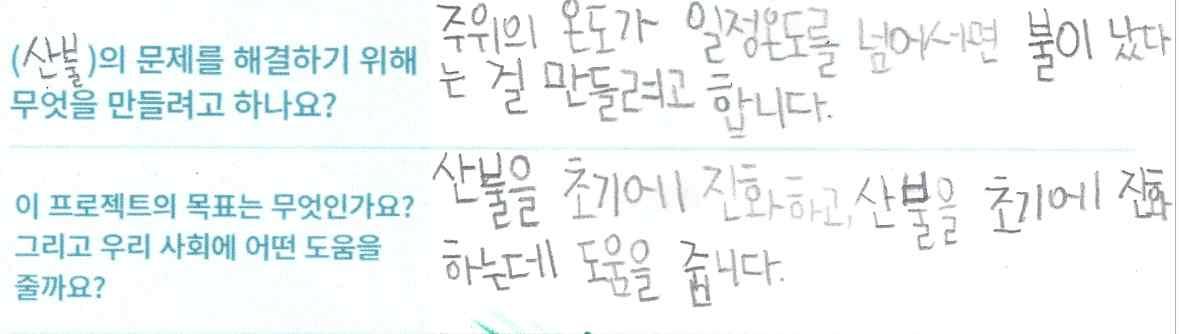 (산불)의 문제를 해결하기 위해
무엇을 만들려고 하나요?
주위의 온도가 일정온도를 넘어서면 불이 났다
는 걸 만들려고 합니다.
이 프로젝트의 목표는 무엇인가요?
그리고 우리 사회에 어떤 도움을
줄까요?
산불을 초기에 진화하고, 산불을 초기에 진화
하는데 도움을 줍니다.